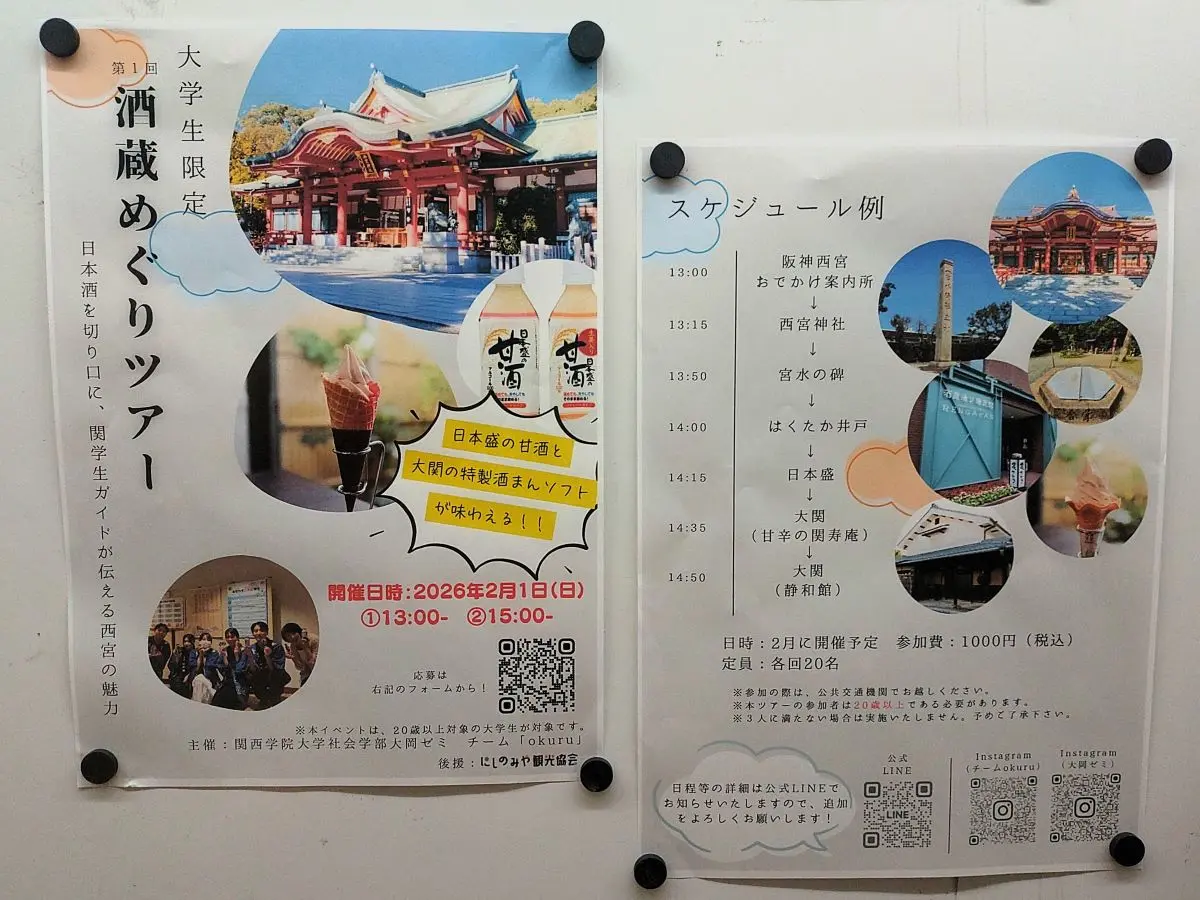 大学生限定
第1回
酒蔵めぐりツアー
日本酒を切り口に、関学生ガイドが伝える西宮の魅力
日本盛の
甘酒
日本盛の
甘酒
日本盛の甘酒と
大関の特製酒まんソフト
が味わえる!!
開催日時:2026年2月1日(日)
①13:00- ②15:00-
応募は
右記のフォームから!
※本イベントは、20歳以上対象の大学生が対象です。
主催:関西学院大学社会学部大岡ゼミ チーム「okuru」
後援:にしのみや観光協会
スケジュール例
13:00 阪神西宮
おでかけ案内所
↓
13:15 西宮神社
↓
13:50 宮水の碑
↓
14:00 はくたか井戸
↓
14:15 日本盛
↓
14:35 大関
(甘辛の関寿庵)
↓
14:50 大関
(静和館)
RENGA
日時:2月に開催予定 参加費:1000円(税込)
定員:各回20名
※参加の際は、公共交通機関でお越しください。
※本ツアーの参加者は20歳以上である必要があります。
※3人に満たない場合は実施いたしません。予めご了承下さい。
日程等の詳細は公式LINEで
お知らせいたしますので、追加
をよろしくお願いします!
公式
LINE
LINE
Instagram
(チームokuru)
Instagram
(大岡ゼミ)